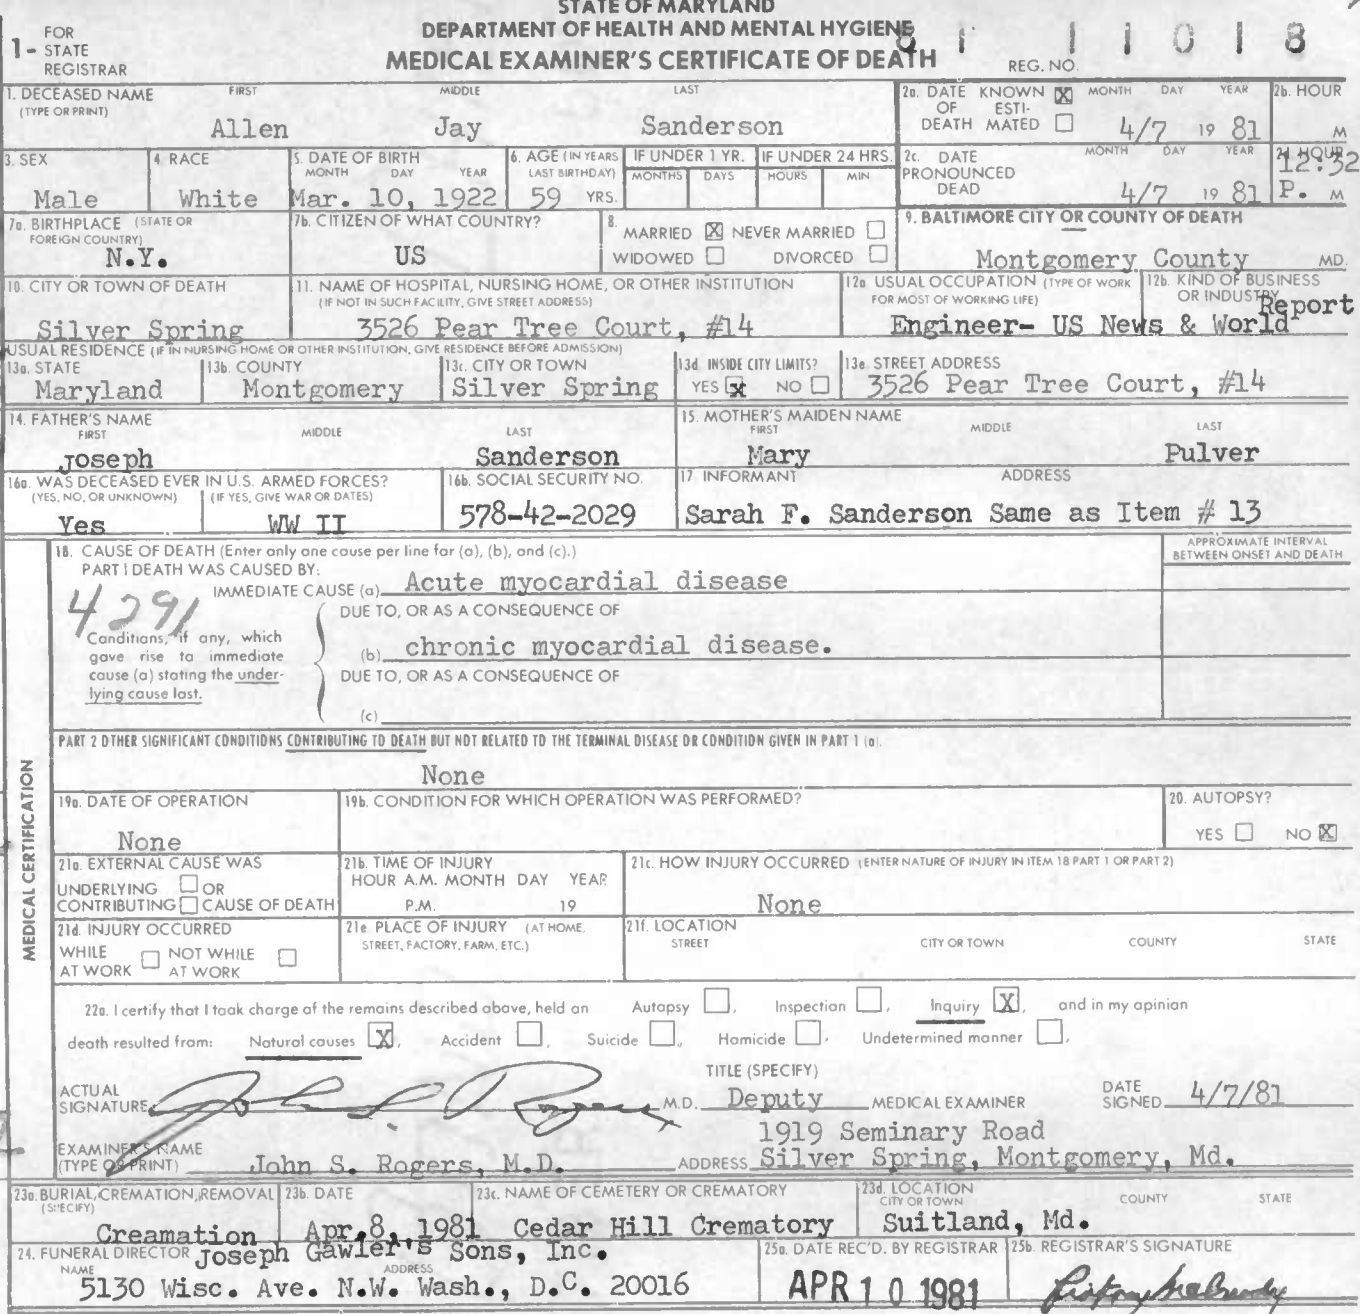 STATE OF MARYLAND
DEPARTMENT OF HEALTH AND MENTAL HYGIENE
MEDICAL EXAMINER'S CERTIFICATE OF DEATH
1- FOR STATE REGISTRAR
REG. NO. 81 11018
1. DECEASED NAME (TYPE OR PRINT) FIRST MIDDLE LAST
Allen Jay Sanderson
2a. DATE OF DEATH KNOWN X ESTIMATED MONTH DAY YEAR
4/7 19 81
2b. HOUR M
3. SEX
Male
4. RACE
White
5. DATE OF BIRTH MONTH DAY YEAR
Mar. 10, 1922
6. AGE (IN YEARS LAST BIRTHDAY)
59 YRS.
IF UNDER 1 YR. MONTHS DAYS
IF UNDER 24 HRS. HOURS MIN
2c. DATE PRONOUNCED DEAD MONTH DAY YEAR
4/7 19 81
2d HOUR
12:32
P. M
7a. BIRTHPLACE (STATE OR FOREIGN COUNTRY)
N.Y.
7b. CITIZEN OF WHAT COUNTRY?
US
8. MARRIED X NEVER MARRIED
WIDOWED DIVORCED
9. BALTIMORE CITY OR COUNTY OF DEATH
Montgomery County MD.
10. CITY OR TOWN OF DEATH
Silver Spring
11. NAME OF HOSPITAL, NURSING HOME, OR OTHER INSTITUTION
(IF NOT IN SUCH FACILITY, GIVE STREET ADDRESS)
3526 Pear Tree Court, #14
12a. USUAL OCCUPATION (TYPE OF WORK FOR MOST OF WORKING LIFE)
12b. KIND OF BUSINESS OR INDUSTRY
Engineer- US News & World Report
USUAL RESIDENCE (IF IN NURSING HOME OR OTHER INSTITUTION, GIVE RESIDENCE BEFORE ADMISSION)
13a. STATE
Maryland
13b. COUNTY
Montgomery
13c. CITY OR TOWN
Silver Spring
13d INSIDE CITY LIMITS?
YES X NO
13e. STREET ADDRESS
3526 Pear Tree Court, #14
14. FATHER'S NAME FIRST MIDDLE LAST
Joseph Sanderson
15. MOTHER'S MAIDEN NAME FIRST MIDDLE LAST
Mary Pulver
16a. WAS DECEASED EVER IN U.S. ARMED FORCES?
(YES, NO, OR UNKNOWN) (IF YES, GIVE WAR OR DATES)
Yes WW II
16b. SOCIAL SECURITY NO.
578-42-2029
17 INFORMANT ADDRESS
Sarah F. Sanderson Same as Item # 13
MEDICAL CERTIFICATION
18. CAUSE OF DEATH (Enter only one cause per line for (a), (b), and (c).)
APPROXIMATE INTERVAL BETWEEN ONSET AND DEATH
PART I DEATH WAS CAUSED BY:
IMMEDIATE CAUSE (a) Acute myocardial disease
4291
DUE TO, OR AS A CONSEQUENCE OF
Conditions, if any, which
gave rise to immediate
cause (a) stating the under-
lying cause last.
(b) chronic myocardial disease.
DUE TO, OR AS A CONSEQUENCE OF
(c)
PART 2 OTHER SIGNIFICANT CONDITIONS CONTRIBUTING TO DEATH BUT NOT RELATED TO THE TERMINAL DISEASE OR CONDITION GIVEN IN PART 1 (a).
None
19a. DATE OF OPERATION
None
19b. CONDITION FOR WHICH OPERATION WAS PERFORMED?
20. AUTOPSY?
YES NO X
21a. EXTERNAL CAUSE WAS
UNDERLYING OR
CONTRIBUTING CAUSE OF DEATH
21b. TIME OF INJURY
HOUR A.M. MONTH DAY YEAR
P.M. 19
21c. HOW INJURY OCCURRED (ENTER NATURE OF INJURY IN ITEM 18 PART 1 OR PART 2)
None
21d. INJURY OCCURRED
WHILE AT WORK NOT WHILE AT WORK
21e PLACE OF INJURY (AT HOME, STREET, FACTORY, FARM, ETC.)
21f. LOCATION
STREET CITY OR TOWN COUNTY STATE
22a. I certify that I took charge of the remains described above, held an Autopsy , Inspection , Inquiry X , and in my opinion
death resulted from: Natural causes X , Accident , Suicide , Homicide , Undetermined manner ,
ACTUAL SIGNATURE John S. Rogers M.D.
TITLE (SPECIFY)
Deputy MEDICAL EXAMINER
DATE SIGNED 4/7/81
EXAMINER'S NAME (TYPE OR PRINT) John S. Rogers, M.D.
1919 Seminary Road
ADDRESS Silver Spring, Montgomery, Md.
23a. BURIAL, CREMATION, REMOVAL (SPECIFY)
Creamation
23b. DATE
Apr.8, 1981
23c. NAME OF CEMETERY OR CREMATORY
Cedar Hill Crematory
23d. LOCATION CITY OR TOWN COUNTY STATE
Suitland, Md.
24. FUNERAL DIRECTOR NAME ADDRESS
Joseph Gawler's Sons, Inc.
5130 Wisc. Ave. N.W. Wash., D.C. 20016
25a. DATE REC'D. BY REGISTRAR
APR 10 1981
25b. REGISTRAR'S SIGNATURE